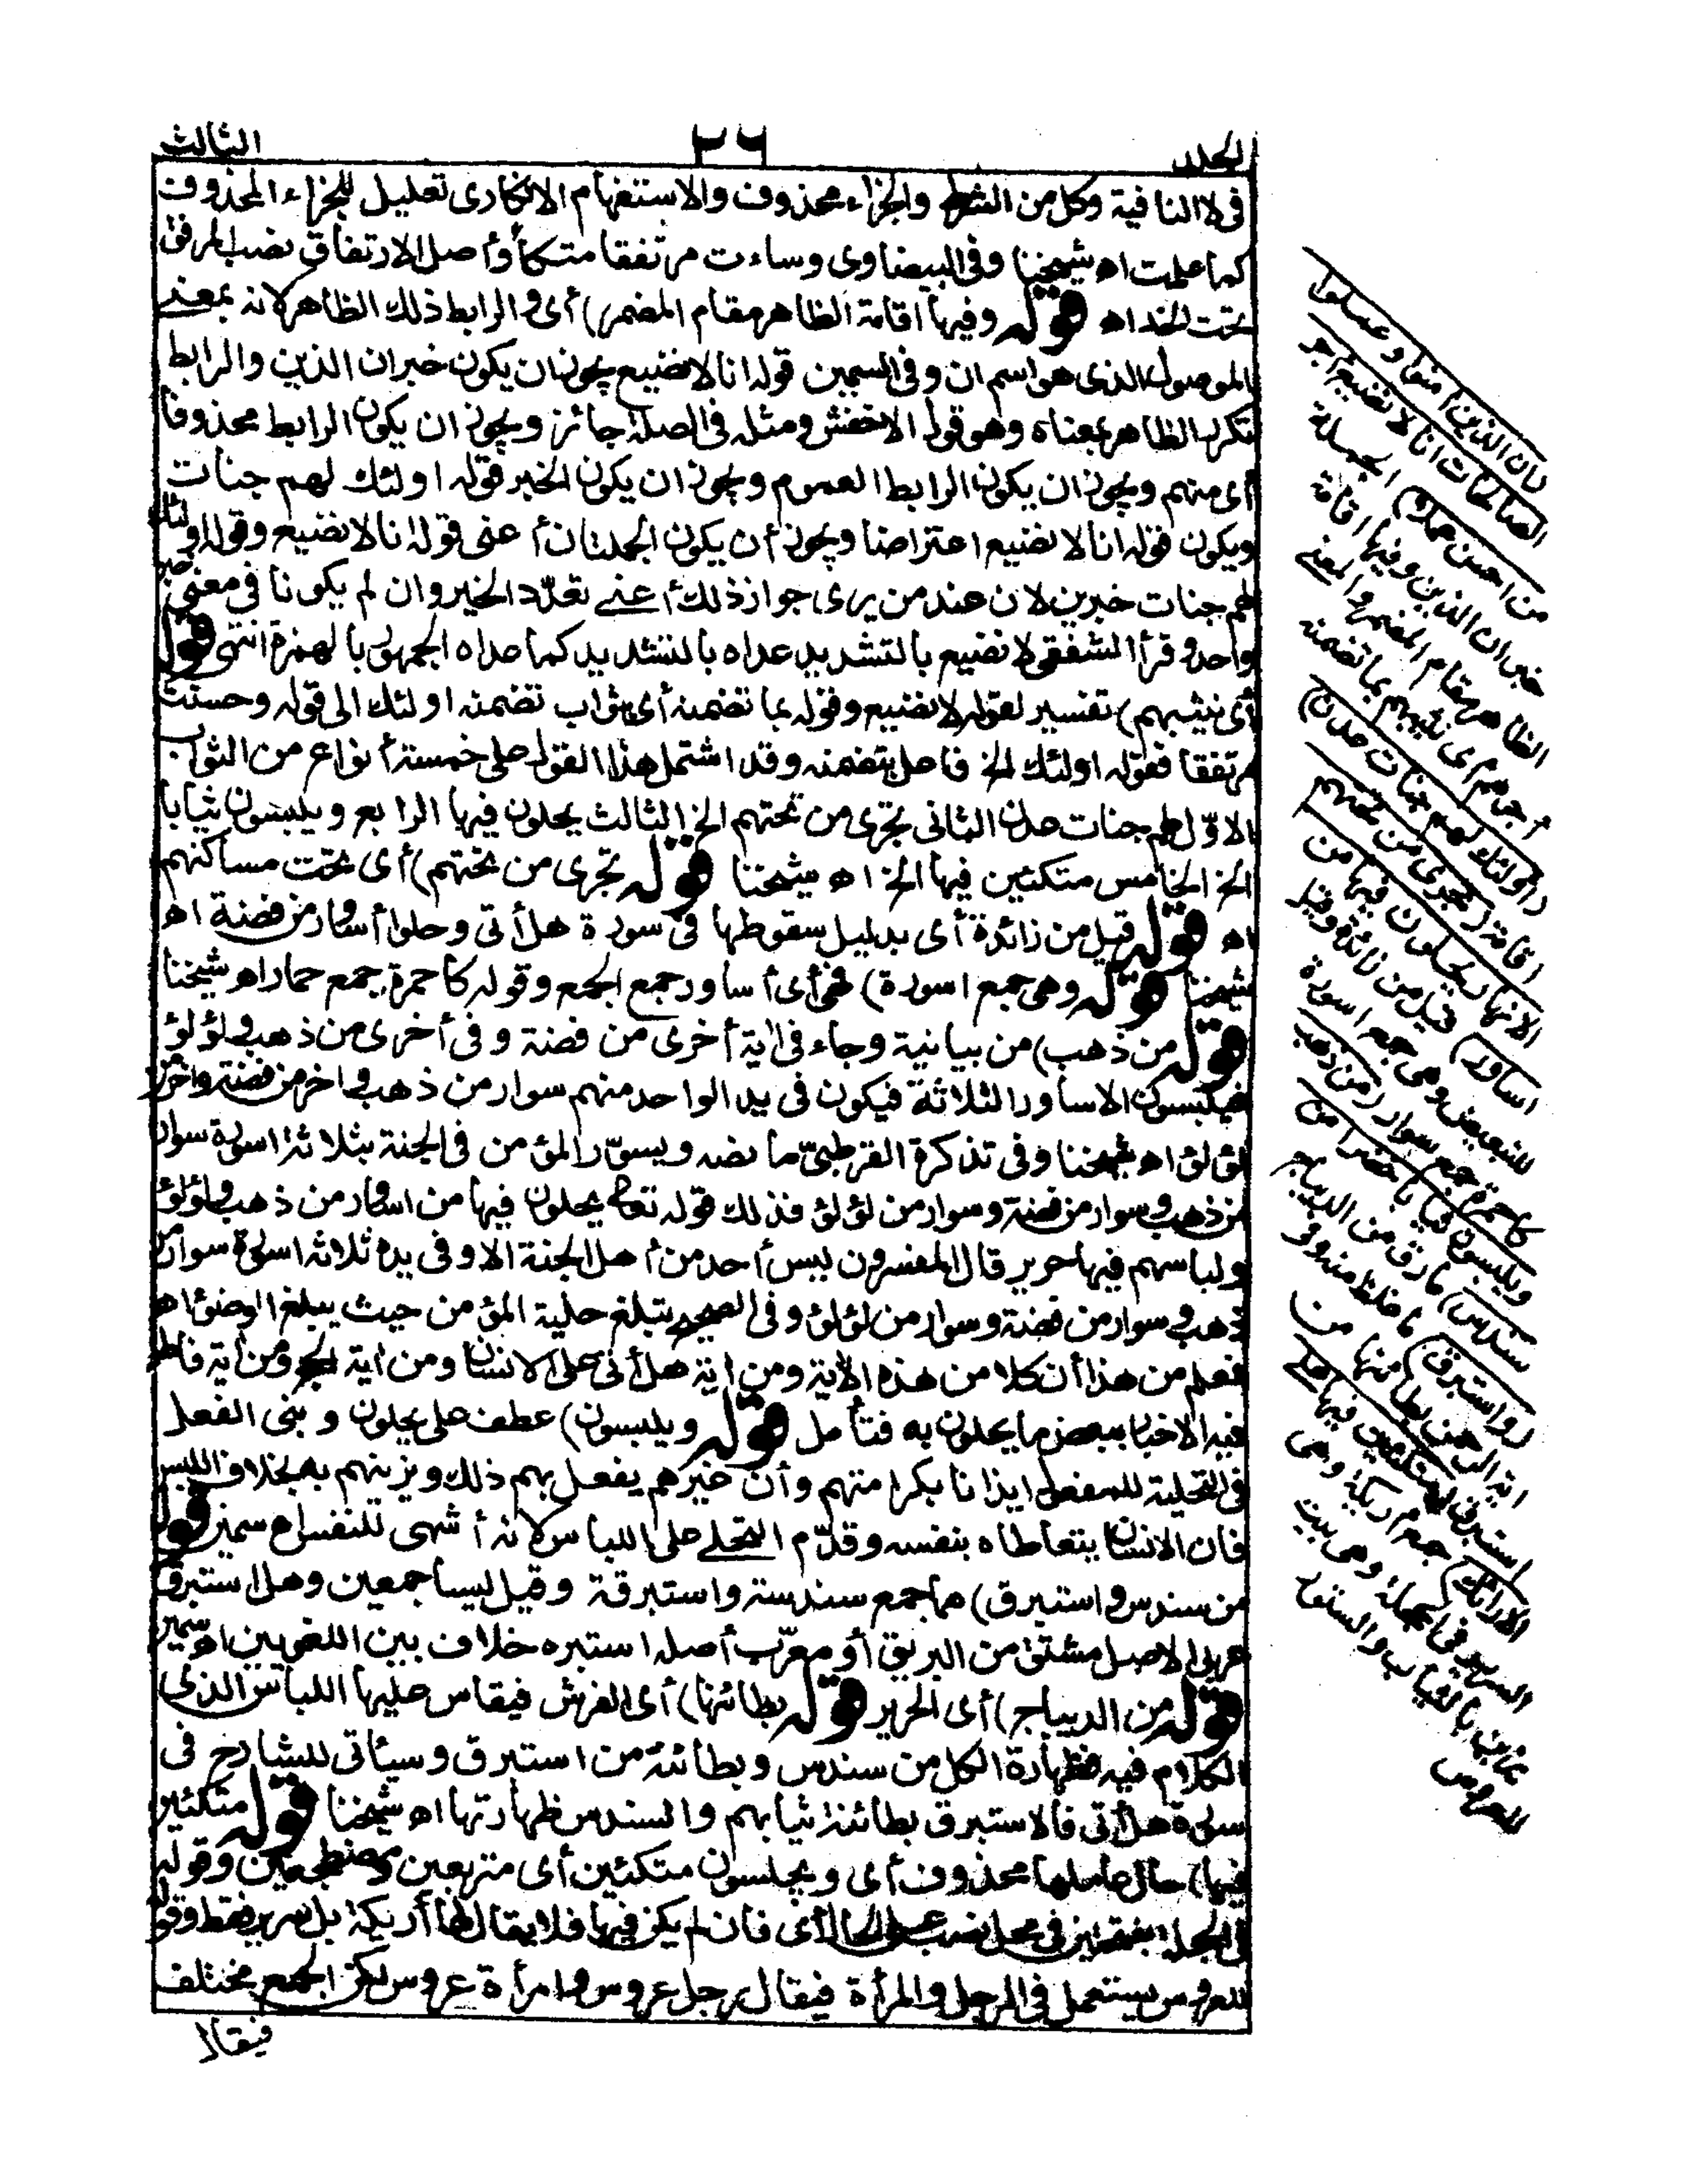 الجلد
٢٦
الثالث
فى لا النافية وكل من الشرط والجزاء محذوف والاستفهام الانكارى تعليل للجزاء المحذوف
كما علمت اه شيخنا وفى البيضاوى وساءت مرتفقا متكأ وأصل الارتفاق نصب المرفق
تحت الخد اه قوله وفيها اقامة الظاهر مقام المضمر) أى والرابط ذلك الظاهر لانه بمعنى
الموصول الذى هو اسم ان وفى السمين قوله انا لا نضيع يجوز ان يكون خبر ان الذين والرابط
تكرر الظاهر بمعناه وهو قول الاخفش ومثله فى الصلة جائز ويجوز ان يكون الرابط محذوفا
أى منهم ويجوز ان يكون الرابط العموم ويجوز ان يكون الخبر قوله اولئك لهم جنات
ويكون قوله انا لا نضيع اعتراضا ويجوز أن يكون الجملتان أعنى قوله انا لا نضيع وقوله اولئك
لهم جنات خبرين لان عند من يرى جواز ذلك أعنى تعدّد الخبر وان لم يكونا فى معنى خبر
واحد وقرأ الشقفى لا نضيع بالتشديد عداه بالتشديد كما عداه الجمهور بالهمزة انتهى قوله
أى نثيبهم) تفسير لقوله لا نضيع وقوله بما تضمنه أى بثواب تضمنه اولئك الى قوله وحسنت
مرتفقا فقوله اولئك الخ فاعل بتضمنه وقد اشتمل هذا القول على خمسة أنواع من الثواب
الاوّل لهم جنات عدن الثانى تجرى من تحتهم الخ الثالث يحلون فيها الرابع ويلبسون ثيابا
الخ الخامس متكئين فيها الخ اه شيخنا قوله تجرى من تحتهم) أى تحت مساكنهم
اه قوله قيل من زائدة أى بدليل سقوطها فى سورة هل أتى وحلوا أساور من فضة اه
شيخنا قوله وهى جمع اسورة) فهى أى أساور جمع الجمع وقوله كاحمرة جمع حمار اه شيخنا
قوله من ذهب) من بيانية وجاء فى اية أخرى من فضة وفى أخرى من ذهب ولؤلؤ
فيلبسون الاساور الثلاثة فيكون فى يد الواحد منهم سوار من ذهب واخر من فضة واخر من
لؤلؤ اه شيخنا وفى تذكرة القرطبىّ ما نصه ويسوّر المؤمن فى الجنة بثلاثة اسورة سوار
من ذهب وسوار من فضة وسوار من لؤلؤ فذلك قوله تعالى يحلون فيها من اساور من ذهب ولؤلؤ
ولباسهم فيها حرير قال المفسرون ليس أحد من أهل الجنة الا وفى يده ثلاثة اسورة سوار من
ذهب وسوار من فضة وسوار من لؤلؤ وفى الصحيح تبلغ حلية المؤمن حيث يبلغ الوضوء اه
فعلم من هذا أن كلا من هذه الاية ومن اية هل أتى على الانسان ومن اية الحج ومن اية فاطر
فيه الاخبار ببعض ما يحلون به فتأمل قوله ويلبسون) عطف على يحلون وبنى الفعل
فى التحلية للمفعول ايذانا بكرامتهم وأن غيرهم يفعل بهم ذلك ويزينهم به بخلاف اللبس
فان الانسان يتعاطاه بنفسه وقدّم التحلى على اللباس لانه أشهى للنفس اه سمين قوله
من سندس واستبرق) هما جمع سندسة واستبرقة وقيل ليسا جمعين وهل استبرق
عربى الاصل مشتق من البريق أو معرّب أصله استبره خلاف بين اللغويين اه سمين
قوله من الديباج) أى الحرير قوله بطائنها) أى الفرش فيقاس عليها اللباس الذى
الكلام فيه فظهارة الكل من سندس وبطائنه من استبرق وسيأتى للشارح فى
سورة هل أتى فالاستبرق بطائنة ثيابهم والسندس ظهارتها اه شيخنا قوله متكئين
فيها) حال عاملها محذوف أى ويجلسون متكئين أى متربعين ومضطجعين وقوله
فى الحجلة بفتحتين فى محل نصب على الحال أى فان لم يكن فيها فلا يقال لها أريكة بل سرير فقط وقوله
للعروس يستعمل فى الرجل والمرأة فيقال رجل عروس وامرأة عروس لكن الجمع مختلف
فيقال
(ان الذين امنوا وعملوا
الصالحات انا لا نضيع أجر
من احسن عملا) الجملة
خبر ان الذين وفيها اقامة
الظاهر مقام المضمر والمعنى
أجرهم أى نثيبهم بما تضمنه
(اولئك لهم جنات عدن)
اقامة (تجرى من تحتهم
الانهار يحلون فيها من
اساور) قيل من زائدة وقيل
للتبعيض وهى جمع اسورة
كاحمرة جمع سوار (من ذهب
ويلبسون ثيابا خضرا من
سندس) ما رق من الديباج
(واستبرق) ما غلظ منه وفى
اية الرحمن بطائنها من
استبرق (متكئين فيها على
الارائك) جمع اريكة وهى
السرير فى الحجلة وهى بيت
يزين بالثياب والستور
للعروس